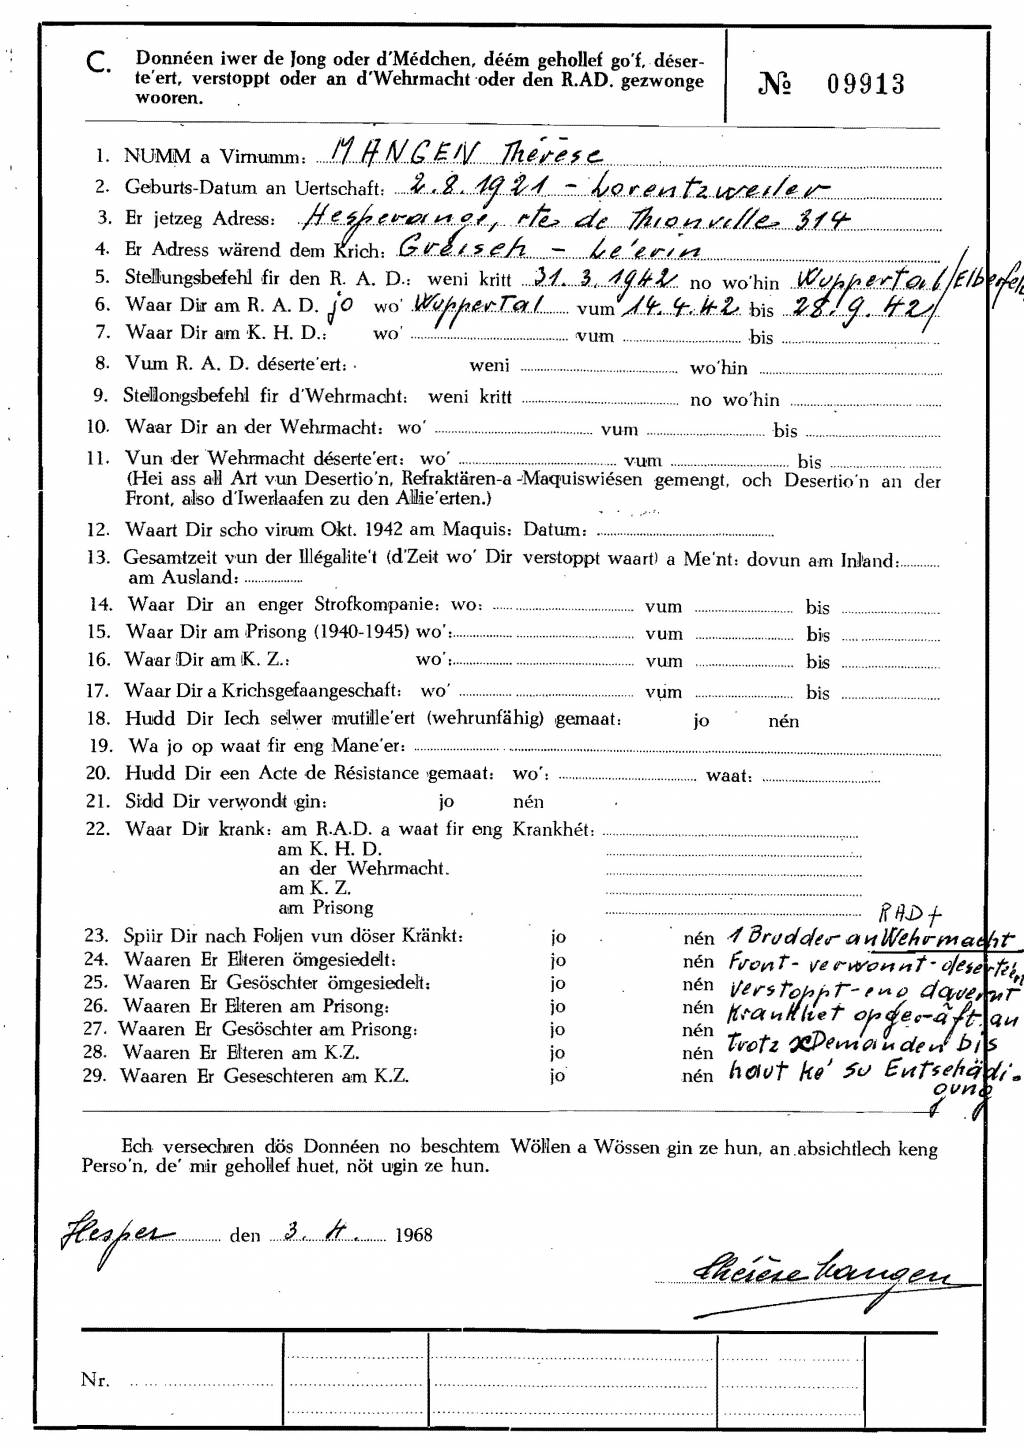 C. Donnéen iwer de Jong oder d'Médchen, déém gehollef go'f, déser-
te'ert, verstoppt oder an d'Wehrmacht oder den R.AD. gezwonge
wooren.
№ 09913
1. NUMM a Virnumm: MANGEN Thérèse
2. Geburts-Datum an Uertschaft: 2.8.1921 - Lorentzweiler
3. Er jetzeg Adress: Hesperange, rte de Thionville 314
4. Er Adress wärend dem Krich: Greisch - Le'erin
5. Stellungsbefehl fir den R. A. D.: weni kritt 31. 3. 1942 no wo'hin Wuppertal/Elberfeld
6. Waar Dir am R. A. D. jo wo' WupperTal vum 14.4.42 bis 28.9.42
7. Waar Dir am K. H. D.: wo' vum bis
8. Vum R. A. D. déserte'ert: weni wo'hin
9. Stellongsbefehl fir d'Wehrmacht: weni kritt no wo'hin
10. Waar Dir an der Wehrmacht: wo' vum bis
11. Vun der Wehrmacht déserte'ert: wo' vum bis
(Hei ass all Art vun Desertio'n, Refraktären-a-Maquiswiésen gemengt, och Desertio'n an der
Front, also d'Iwerlaafen zu den Allie'erten.)
12. Waart Dir scho virum Okt. 1942 am Maquis: Datum:
13. Gesamtzeit vun der Illégalite't (d'Zeit wo' Dir verstoppt waart) a Me'nt: dovun am Inland:
am Ausland:
14. Waar Dir an enger Strofkompanie: wo: vum bis
15. Waar Dir am Prisong (1940-1945) wo': vum bis
16. Waar Dir am K. Z.: wo': vum bis
17. Waar Dir a Krichsgefaangeschaft: wo' vum bis
18. Hudd Dir Iech selwer mutille'ert (wehrunfähig) gemaat: jo nén
19. Wa jo op waat fir eng Mane'er:
20. Hudd Dir een Acte de Résistance gemaat: wo': waat:
21. Sidd Dir verwondt gin: jo nén
22. Waar Dir krank: am R.A.D. a waat fir eng Krankhét:
am K. H. D.
an der Wehrmacht.
am K. Z.
am Prisong RAD +
23. Spiir Dir nach Foljen vun döser Kränkt: jo nén 1 Brudder an Wehrmacht
24. Waaren Er Elteren ömgesiedelt: jo nén Front - verwonnt - deserteiert
25. Waaren Er Gesöschter ömgesiedelt: jo nén verstoppt - eng dauernt
26. Waaren Er Elteren am Prisong: jo nén Krankhet opgeräft an
27. Waaren Er Gesöschter am Prisong: jo nén trotz Demanden bis
28. Waaren Er Elteren am K.Z. jo nén haut ke' su Entschädi-
29. Waaren Er Geseschteren am K.Z. jo nén gung
Ech versechren dös Donnéen no beschtem Wöllen a Wössen gin ze hun, an absichtlech keng
Perso'n, de' mir gehollef huet, nöt ugin ze hun.
Hesper den 3. 4. 1968
Thérèse Mangen
Nr.